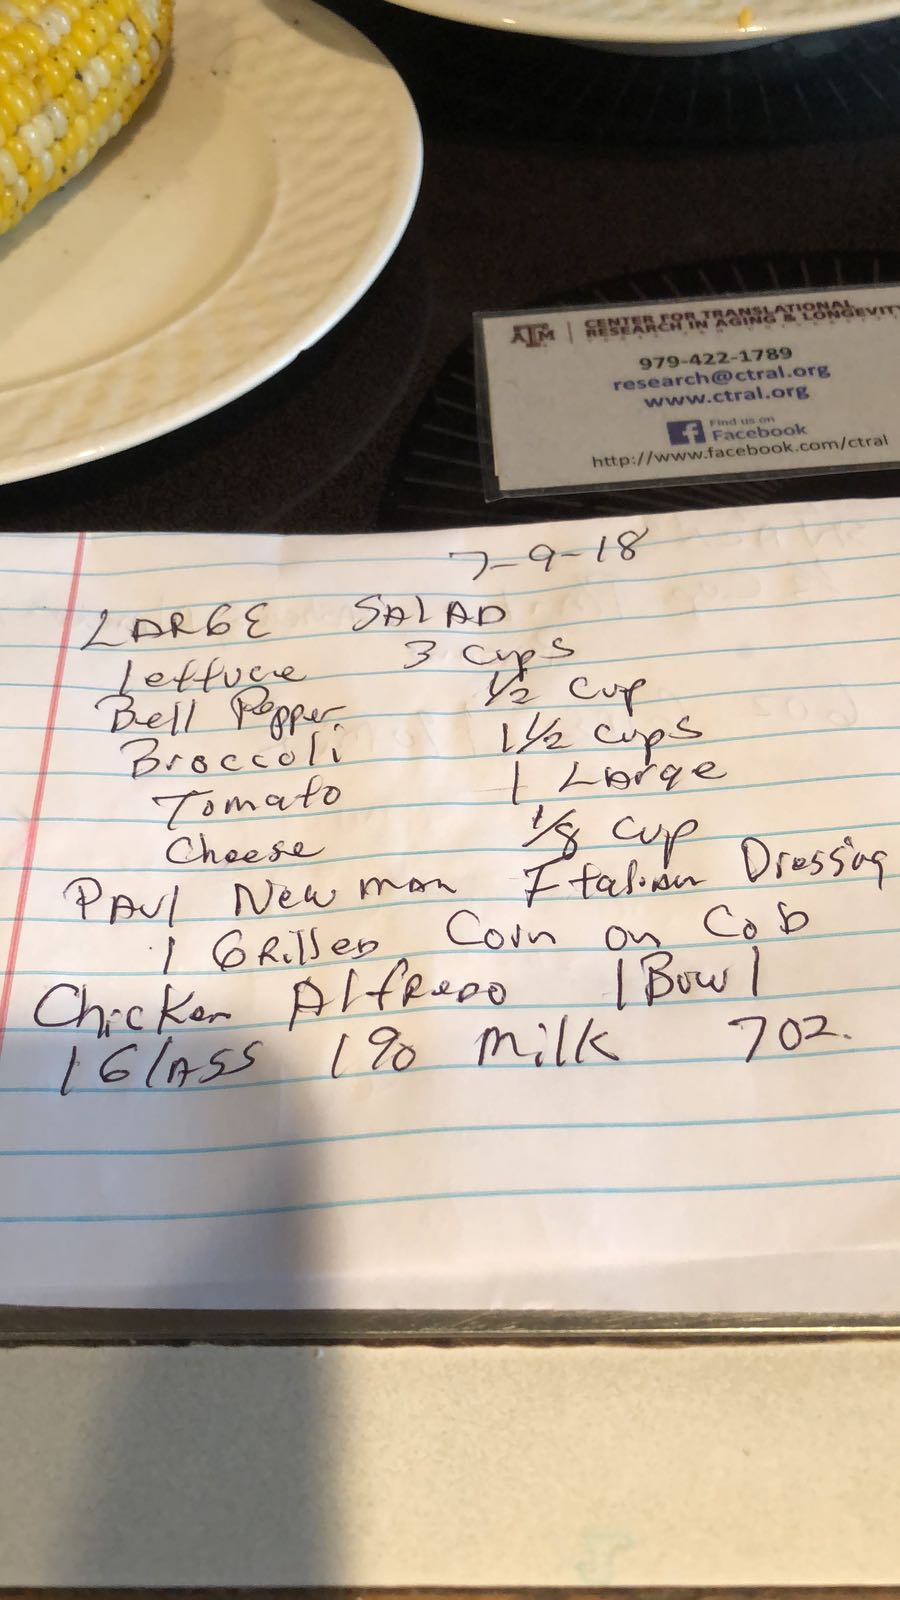 ATM | CENTER FOR TRANSLATIONAL
RESEARCH IN AGING & LONGEVITY
979-422-1789
research@ctral.org
www.ctral.org
f Find us on
Facebook
http://www.facebook.com/ctral
7-9-18
LARGE SALAD
lettuce 3 cups
Bell Pepper 1/2 cup
Broccoli 1 1/2 cups
Tomato 1 Large
Cheese 1/8 cup
PAul Newman Italian Dressing
1 GRilled Corn on Cob
Chicken AlfRedo 1 Bowl
1 GlASS 1% milk 7oz.